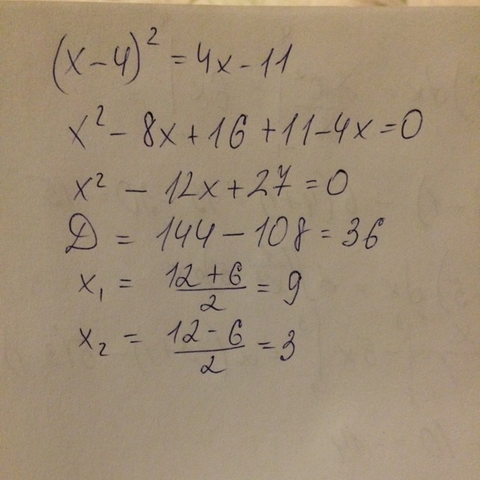 (x-4)² = 4x - 11
x² - 8x + 16 + 11 - 4x = 0
x² - 12x + 27 = 0
D = 144 - 108 = 36
x₁ = (12 + 6)/2 = 9
x₂ = (12 - 6)/2 = 3